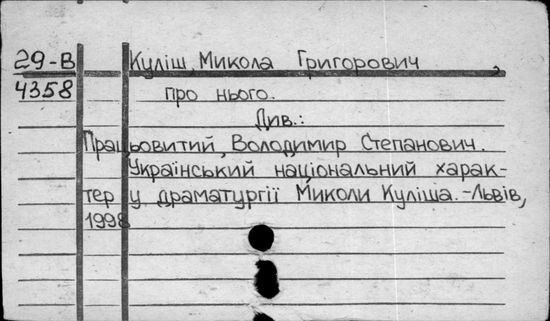 29-В Куліш, Микола Григорович,
4358 про нього.
Див.:
Працьовитий, Володимир Степанович.
Український національний харак-
тер у драматургії Миколи Куліша.-Львів,
1998